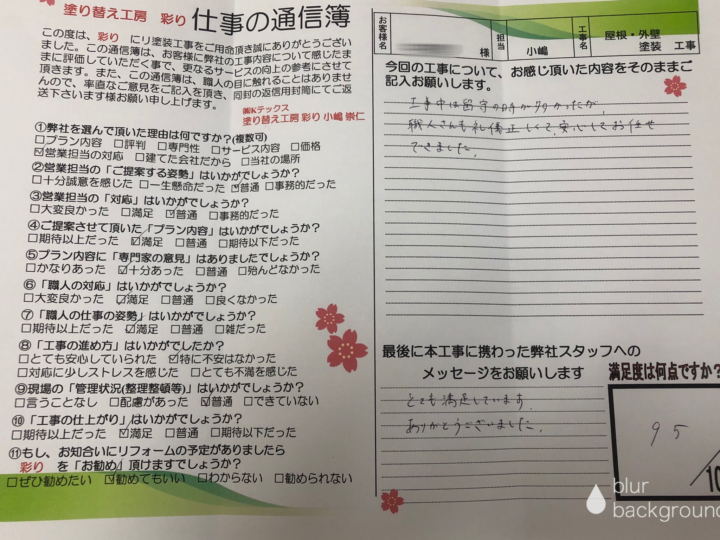 塗り替え工房 彩り 仕事の通信簿
この度は、彩り にリ塗装工事をご用命頂き誠にありがとうござい
ました。この通信簿は、お客様に弊社の工事内容について感じたま
まに評価していただく事で、更なるサービスの向上の参考にさせて
頂きます。また、この通信簿は、職人の目に触れることはありませ
んので、率直なご意見をご記入を頂き、同封の返信用封筒にてご返
送下さいます様お願い申し上げます。
㈱Kテックス
塗り替え工房 彩り 小嶋 崇仁
①弊社を選んで頂いた理由は何ですか?(複数可)
□プラン内容 □評判 □専門性 □サービス内容 □価格
☑営業担当の対応 □建てた会社だから □当社の場所
②営業担当の「ご提案する姿勢」はいかがでしょうか?
□十分誠意を感じた □一生懸命だった ☑普通 □事務的だった
③営業担当の「対応」はいかがでしょうか?
□大変良かった □満足 ☑普通 □事務的だった
④ご提案させて頂いた「プラン内容」はいかがでしょうか?
□期待以上だった ☑満足 □普通 □期待以下だった
⑤プラン内容に「専門家の意見」はありましたでしょうか?
□かなりあった ☑十分あった □普通 □殆んどなかった
⑥「職人の対応」はいかがでしょうか?
□大変良かった ☑満足 □普通 □良くなかった
⑦「職人の仕事の姿勢」はいかがでしょうか?
□期待以上だった ☑満足 □普通 □雑だった
⑧「工事の進め方」はいかがでしたか?
□とても安心していられた ☑特に不安はなかった
□対応に少しストレスを感じた □とても不満を感じた
⑨現場の「管理状況(整理整頓等)」はいかがでしょうか?
□言うことなし □配慮があった ☑普通 □できていない
⑩「工事の仕上がり」はいかがでしょうか?
□期待以上だった ☑満足 □普通 □期待以下だった
⑪もし、お知合いにリフォームの予定がありましたら
彩り を「お勧め」頂けますでしょうか?
□ぜひ勧めたい ☑勧めてもいい □わからない □勧められない
お客様名 様 担当 小嶋 工事名 屋根・外壁
塗装 工事
今回の工事について、お感じ頂いた内容をそのままご
記入お願いします。
工事中は留守の時が多かったが、
職人さんも礼儀正しくて、安心してお任せ
できました。
最後に本工事に携わった弊社スタッフへの
メッセージをお願いします
とても満足しています。
ありがとうございました。
満足度は何点ですか?
95
/10
blur
background